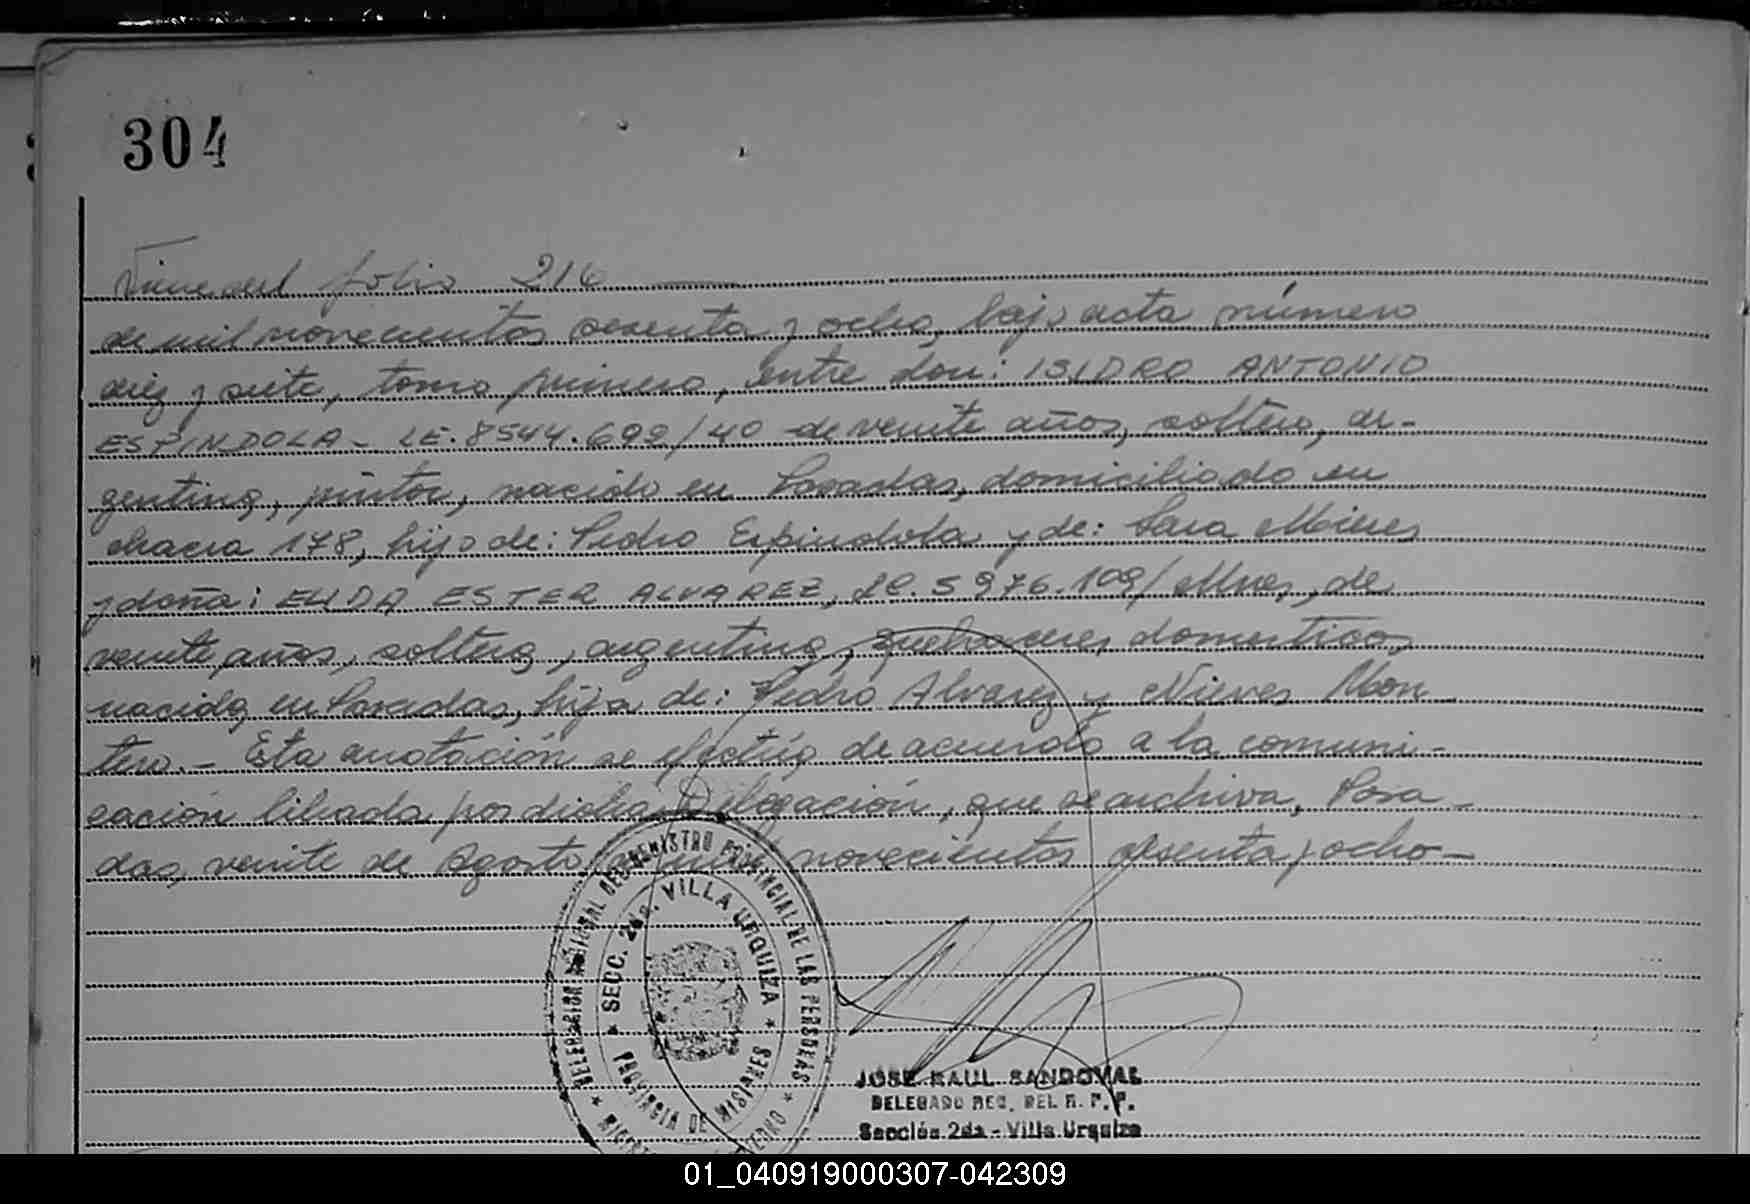 304
Viene del folio 216
de mil novecientos sesenta y ocho, bajo acta número
diez y siete, tomo primero, entre don: ISIDRO ANTONIO
ESPINDOLA - LE. 8544.699/40 de veinte años, soltero, ar-
gentino, pintor, nacido en Posadas, domiciliado en
chacra 178, hijo de: Pedro Espindola y de: Sara Mieres
y doña: ELIDA ESTER ALVAREZ, LC. 5976.109/Mnes, de
veinte años, soltera, argentina, quehaceres domesticos,
nacida en Posadas, hija de: Pedro Alvarez y Nieves Mon
tero.- Esta anotación se efectúa de acuerdo a la comuni-
cación librada por dicha Delegación, que se archiva, Posa-
das, veinte de Agosto de mil novecientos sesenta y ocho-
DELEGACION REGIONAL DEL REGISTRO PROVINCIAL DE LAS PERSONAS
SECC. 2da. VILLA URQUIZA
PROVINCIA DE MISIONES
JOSE RAUL SANDOVAL
DELEGADO REG. DEL R. P. P.
Sección 2da - Villa Urquiza
01_040919000307-042309